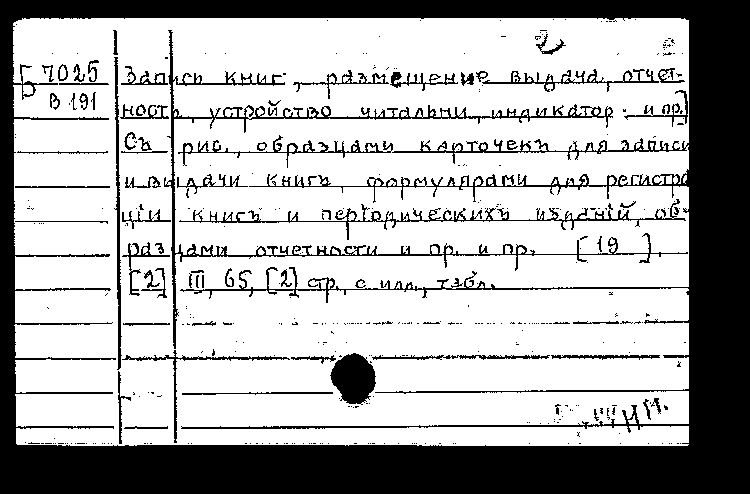 2
Б 7025
В 191
Запись книг, размещение выдача, отчет-
ность, устройство читальни, индикатор и пр]
Съ рис., образцами карточекъ для записи
и выдачи книгъ, формулярами для регистра
ціи книгъ и періодическихъ изданій, об-
разцами отчетности и пр. и пр. [19 ].
[2] III, 65, [2] стр., с илл., табл.